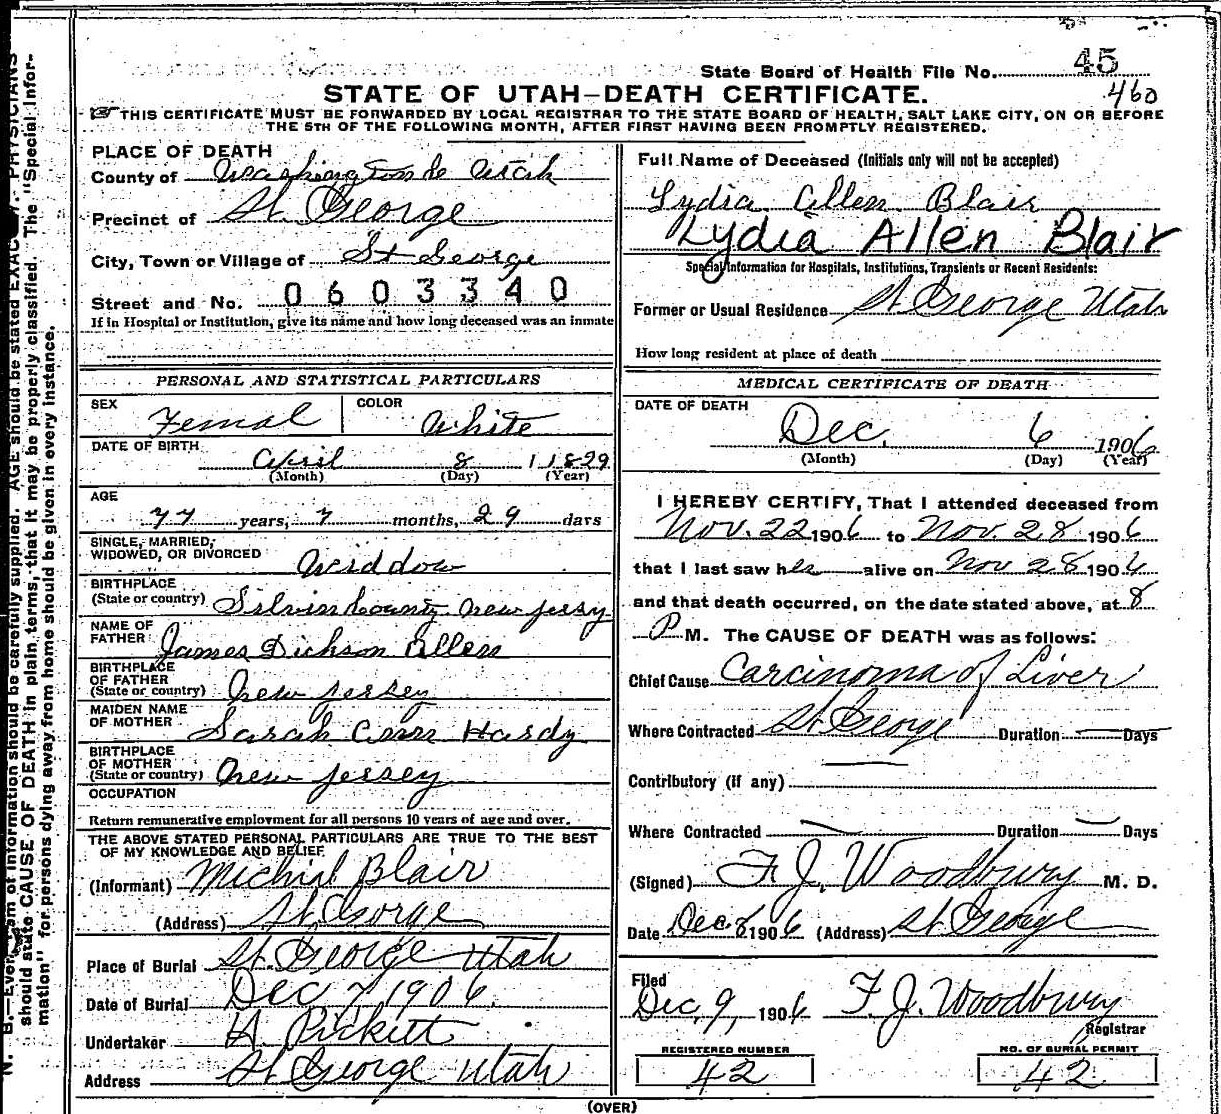 State Board of Health File No. 45
460
STATE OF UTAH—DEATH CERTIFICATE.
THIS CERTIFICATE MUST BE FORWARDED BY LOCAL REGISTRAR TO THE STATE BOARD OF HEALTH, SALT LAKE CITY, ON OR BEFORE
THE 5TH OF THE FOLLOWING MONTH, AFTER FIRST HAVING BEEN PROMPTLY REGISTERED.
PLACE OF DEATH
County of Washington Utah
Precinct of St. George
City, Town or Village of St George
Street and No. 0603340
If in Hospital or Institution, give its name and how long deceased was an inmate
PERSONAL AND STATISTICAL PARTICULARS
SEX Femal COLOR White
DATE OF BIRTH April 8 1829
(Month) (Day) (Year)
AGE
77 years, 7 months, 29 days
SINGLE, MARRIED,
WIDOWED, OR DIVORCED Widdow
BIRTHPLACE
(State or country) County New Jersy
NAME OF
FATHER James Dickson Allen
BIRTHPLACE
OF FATHER
(State or country) New Jersey
MAIDEN NAME
OF MOTHER Sarah Ann Hardy
BIRTHPLACE
OF MOTHER
(State or country) New Jersey
OCCUPATION
Return remunerative employment for all persons 10 years of age and over.
THE ABOVE STATED PERSONAL PARTICULARS ARE TRUE TO THE BEST
OF MY KNOWLEDGE AND BELIEF
(Informant) Blair
(Address) St George
Place of Burial St. George Utah
Date of Burial Dec 7, 1906
Undertaker Pickett
Address St George Utah
Full Name of Deceased (Initials only will not be accepted)
Lydia Allen Blair
Lydia Allen Blair
Special Information for Hospitals, Institutions, Transients or Recent Residents:
Former or Usual Residence St George Utah
How long resident at place of death
MEDICAL CERTIFICATE OF DEATH
DATE OF DEATH
Dec. 6 1906
(Month) (Day) (Year)
I HEREBY CERTIFY, That I attended deceased from
Nov. 22 1906 to Nov. 28 1906
that I last saw her alive on Nov 28 1906
and that death occurred, on the date stated above, at 8
P M. The CAUSE OF DEATH was as follows:
Chief Cause Carcinoma of Liver
Where Contracted St George Duration — Days
Contributory (if any)
Where Contracted — Duration — Days
(Signed) F. J. Woodbury M. D.
Date Dec 8 1906 (Address) St George
Filed
Dec. 9, 1906 F. J. Woodbury
Registrar
REGISTERED NUMBER
42
NO. OF BURIAL PERMIT
42
(OVER)
N. B.—Every item of information should be carefully supplied. AGE should be stated EXACTLY. PHYSICIANS
should state CAUSE OF DEATH in plain terms, that it may be properly classified. The "Special Infor-
mation" for persons dying away from home should be given in every instance.